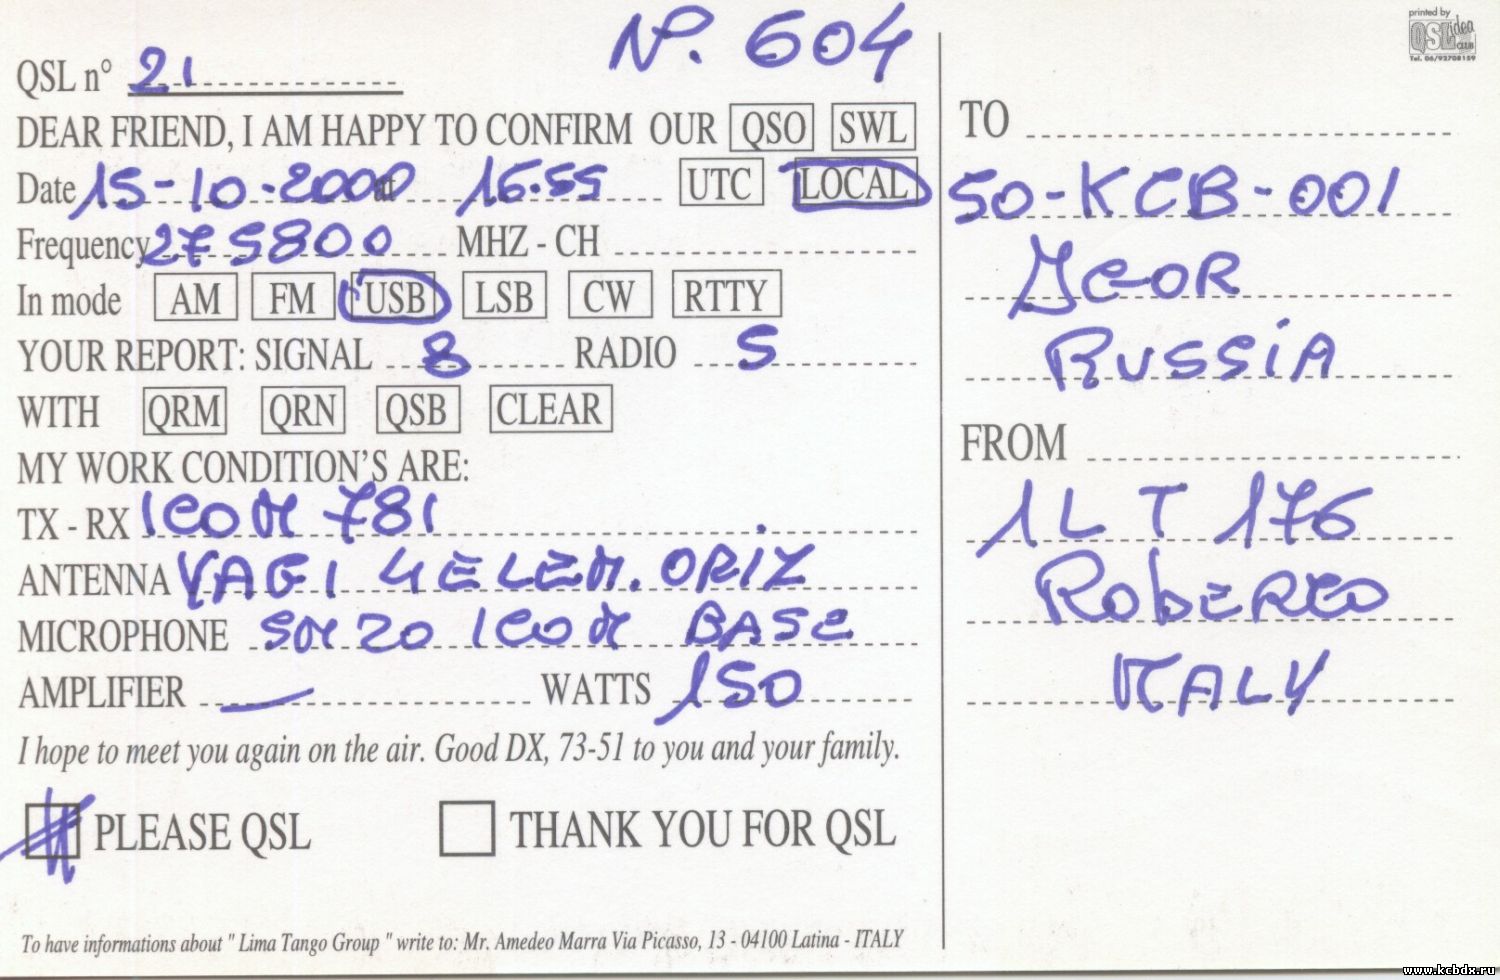 N°. 604
QSL n° 21
DEAR FRIEND, I AM HAPPY TO CONFIRM OUR QSO SWL
Date 15-10-2000 at 16.55 UTC LOCAL
Frequency 275800 MHZ - CH
In mode AM FM USB LSB CW RTTY
YOUR REPORT: SIGNAL 8 RADIO 5
WITH QRM QRN QSB CLEAR
MY WORK CONDITION'S ARE:
TX - RX ICOM 781
ANTENNA YAGI 4 ELEM. ORIZ
MICROPHONE SM 20 ICOM BASE
AMPLIFIER — WATTS 150
I hope to meet you again on the air. Good DX, 73-51 to you and your family.
PLEASE QSL THANK YOU FOR QSL
To have informations about " Lima Tango Group " write to: Mr. Amedeo Marra Via Picasso, 13 - 04100 Latina - ITALY
printed by
QSL idea
CLUB
Tel. 06/92708159
TO
50-KCB-001
IGOR
RUSSIA
FROM
1 LT 176
ROBERTO
ITALY
www.kcbdx.ru